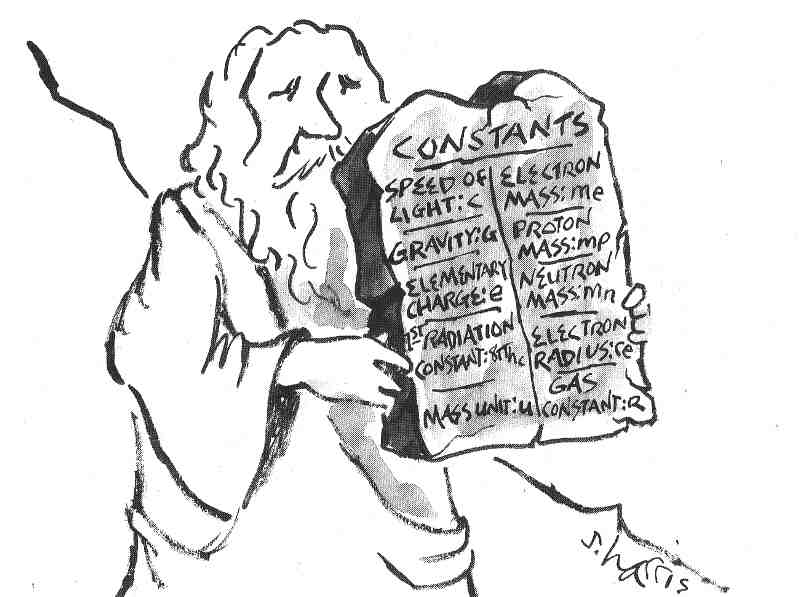 CONSTANTS
SPEED OF
LIGHT:C
GRAVITY:G
ELEMENTARY
CHARGE:e
1ST RADIATION
CONSTANT:8πhc
MASS UNIT:u
ELECTRON
MASS:me
PROTON
MASS:mp
NEUTRON
MASS:mn
ELECTRON
RADIUS:re
GAS
CONSTANT:R
s. harris